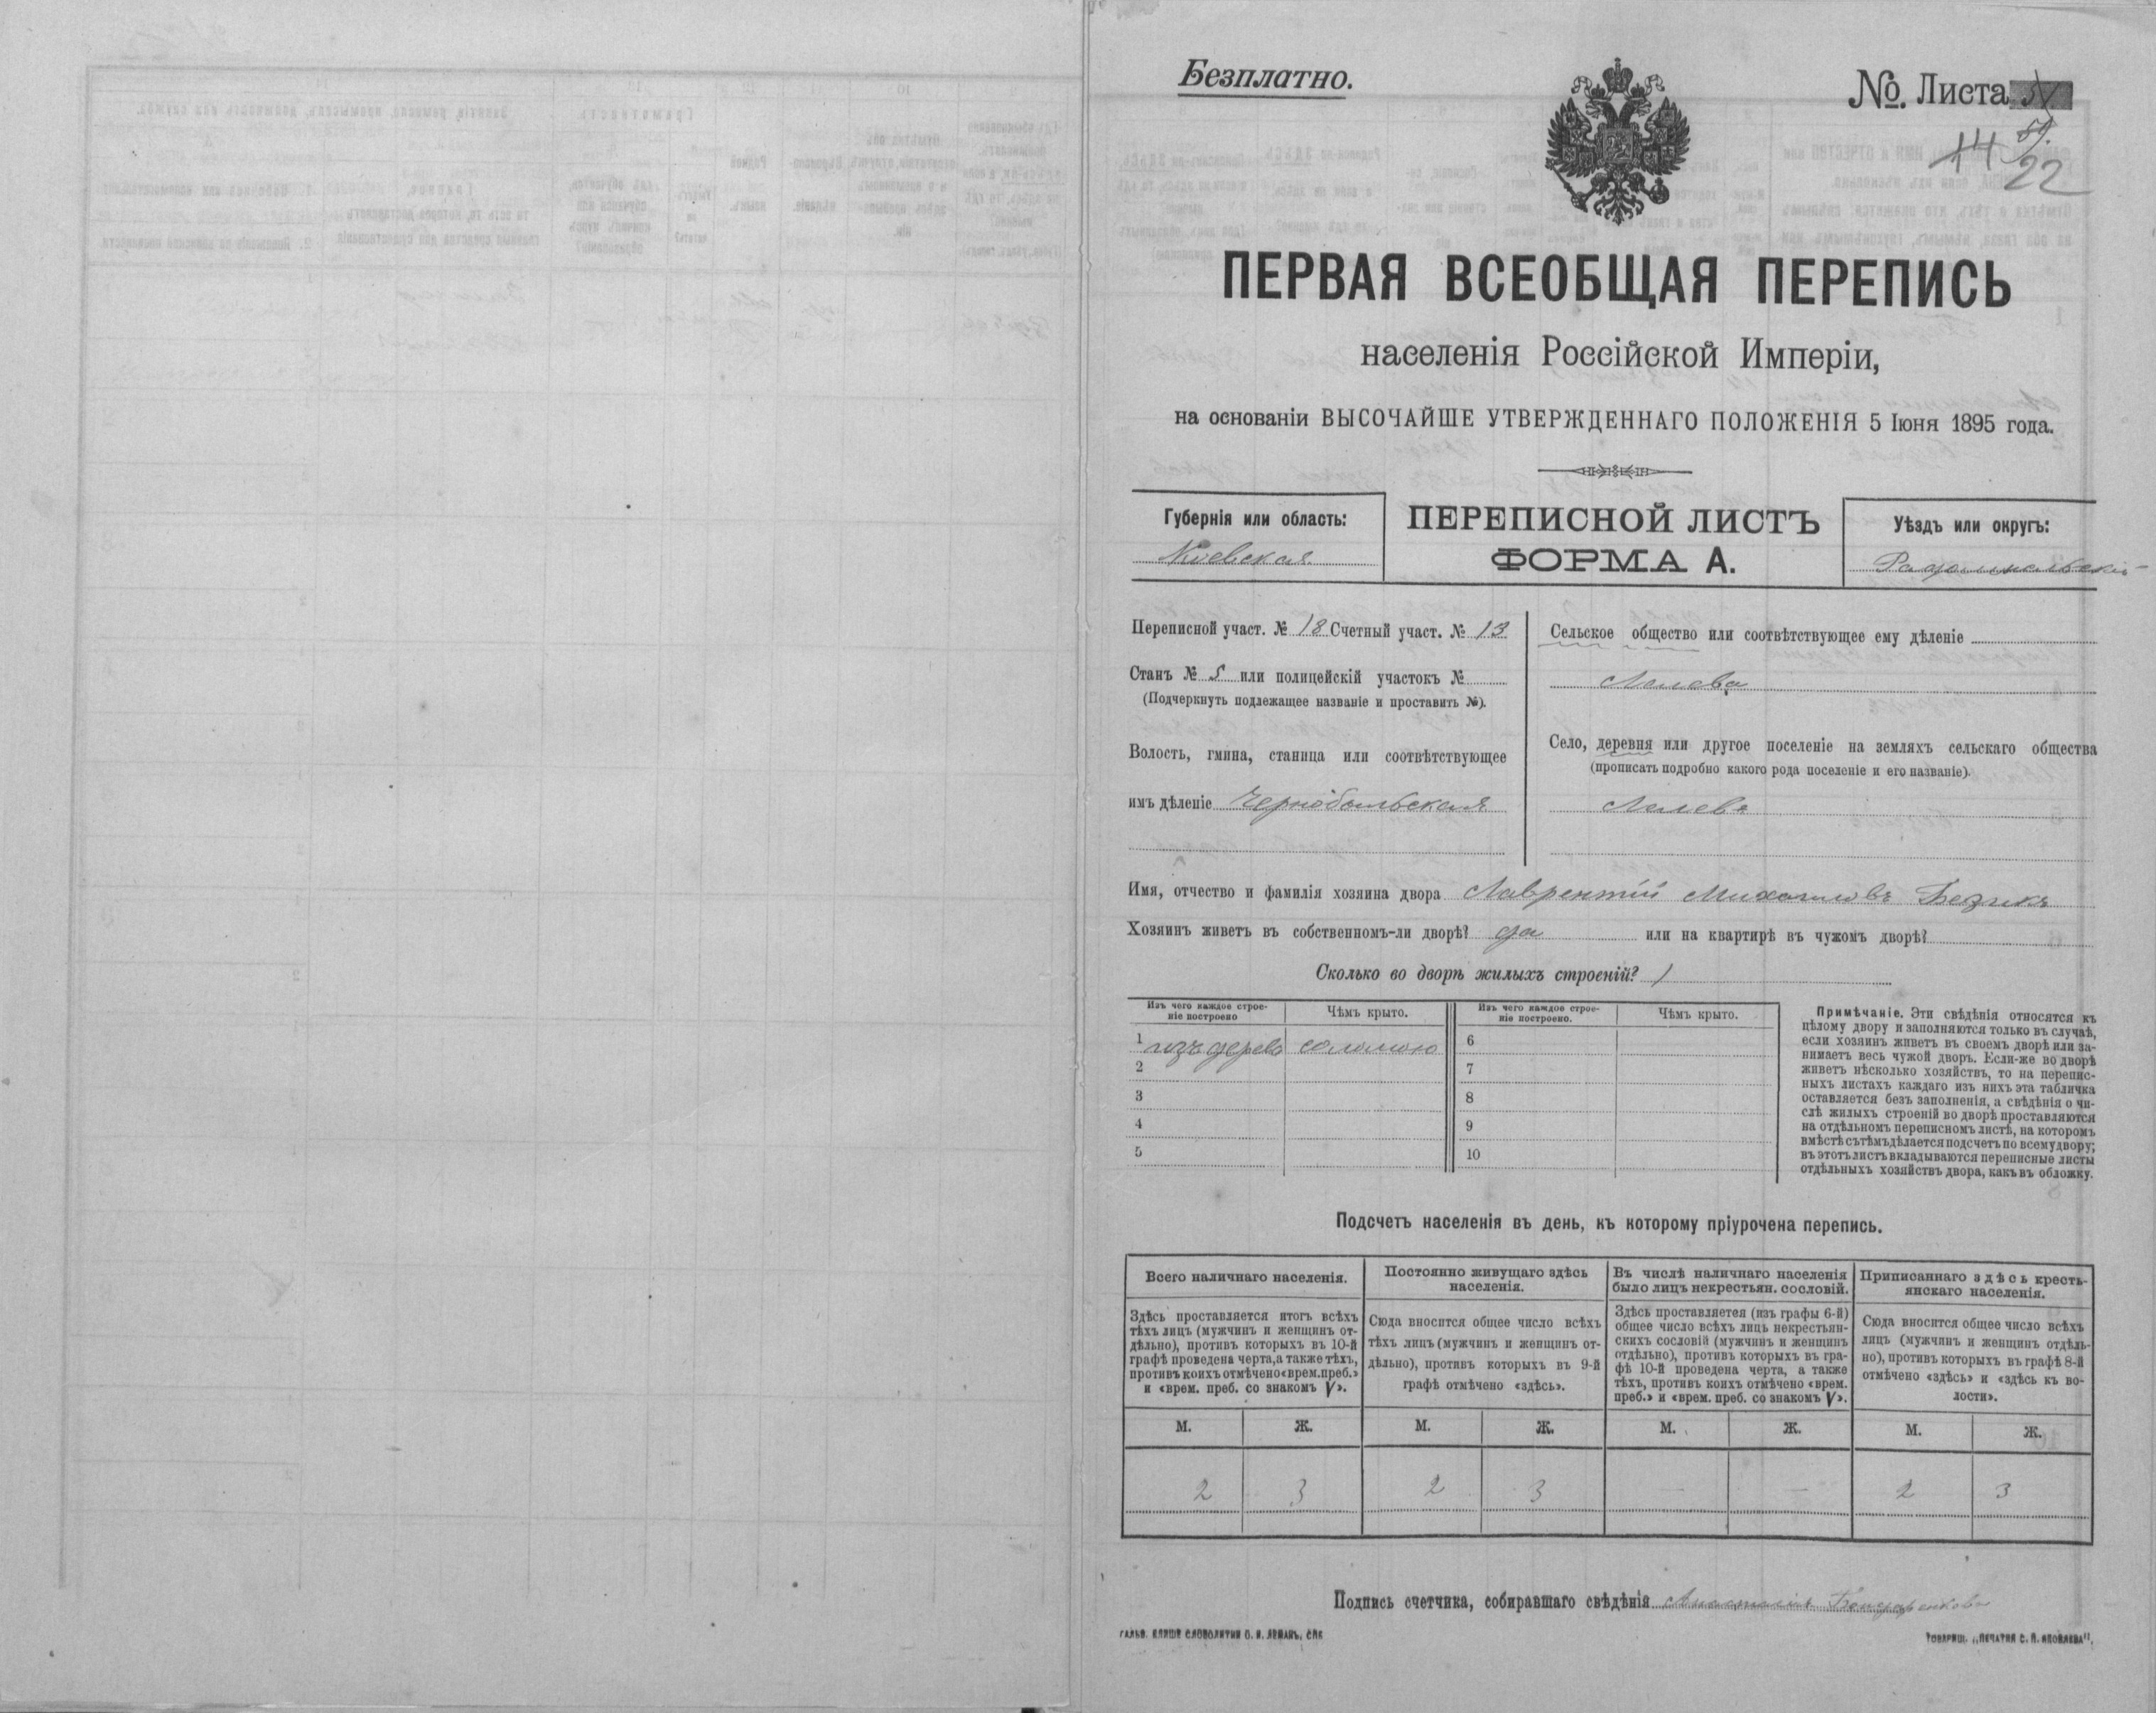 Безплатно.
№. Листа
22
ПЕРВАЯ ВСЕОБЩАЯ ПЕРЕПИСЬ
населенія Россійской Имперіи,
на основаніи ВЫСОЧАЙШЕ УТВЕРЖДЕННАГО ПОЛОЖЕНІЯ 5 Іюня 1895 года.
Губернія или область:
Кіевская
ПЕРЕПИСНОЙ ЛИСТЪ
ФОРМА А.
Уѣздъ или округъ:
Радомысльскій
Переписной участ. № 18 Счетный участ. № 13
Станъ № 5 или полицейскій участокъ №
(Подчеркнуть подлежащее названіе и проставить №).
Волость, гмина, станица или соотвѣтствующее
имъ дѣленіе Чернобыльская
Сельское общество или соотвѣтствующее ему дѣленіе
Лелевъ
Село, деревня или другое поселеніе на земляхъ сельскаго общества
(прописать подробно какого рода поселеніе и его названіе).
Лелевъ
Имя, отчество и фамилія хозяина двора Лаврентій Михайловъ Безикъ
Хозяинъ живетъ въ собственномъ-ли дворѣ? да или на квартирѣ въ чужомъ дворѣ?
Сколько во дворѣ жилыхъ строеній? 1
Изъ чего каждое строе-
ніе построено
Чѣмъ крыто.
Изъ чего каждое строе-
ніе построено.
Чѣмъ крыто.
1 изъ дерева соломою 6
2 7
3 8
4 9
5 10
Примѣчаніе. Эти свѣдѣнія относятся къ
цѣлому двору и заполняются только въ случаѣ,
если хозяинъ живетъ въ своемъ дворѣ или за-
нимаетъ весь чужой дворъ. Если-же во дворѣ
живетъ нѣсколько хозяйствъ, то на перепис-
ныхъ листахъ каждаго изъ нихъ эта табличка
оставляется безъ заполненія, а свѣдѣнія о чи-
слѣ жилыхъ строеній во дворѣ проставляются
на отдѣльномъ переписномъ листѣ, на которомъ
вмѣстѣ съ тѣмъ дѣлается подсчетъ по всему двору;
въ этотъ листъ вкладываются переписные листы
отдѣльныхъ хозяйствъ двора, какъ въ обложку.
Подсчетъ населенія въ день, къ которому пріурочена перепись.
Всего наличнаго населенія.
Здѣсь проставляется итогъ всѣхъ
тѣхъ лицъ (мужчинъ и женщинъ от-
дѣльно), противъ которыхъ въ 10-й
графѣ проведена черта, а также тѣхъ,
противъ коихъ отмѣчено «врем. преб.»
и «врем. преб. со знакомъ V».
Постоянно живущаго здѣсь
населенія.
Сюда вносится общее число всѣхъ
тѣхъ лицъ (мужчинъ и женщинъ от-
дѣльно), противъ которыхъ въ 9-й
графѣ отмѣчено «здѣсь».
Въ числѣ наличнаго населенія
было лицъ некрестьян. сословій.
Здѣсь проставляетея (изъ графы 6-й)
общее число всѣхъ лицъ некрестьян-
скихъ сословій (мужчинъ и женщинъ
отдѣльно), противъ которыхъ въ гра-
фѣ 10-й проведена черта, а также
тѣхъ, противъ коихъ отмѣчено «врем.
преб.» и «врем. преб. со знакомъ V».
Приписаннаго здѣсь кресть-
янскаго населенія.
Сюда вносится общее число всѣхъ
лицъ (мужчинъ и женщинъ отдѣль-
но), противъ которыхъ въ графѣ 8-й
отмѣчено «здѣсь» и «здѣсь къ во-
лости».
М. Ж. М. Ж. М. Ж. М. Ж.
2 3 2 3 — — 2 3
Подпись счетчика, собиравшаго свѣдѣнія Бондаренкова
ГАЛЬВ. КЛИШЕ СЛОВОЛИТНИ О. И. ЛЕМАНЪ, СПБ
ТОВАРИЩ. „ПЕЧАТНЯ С. П. ЯКОВЛЕВА".